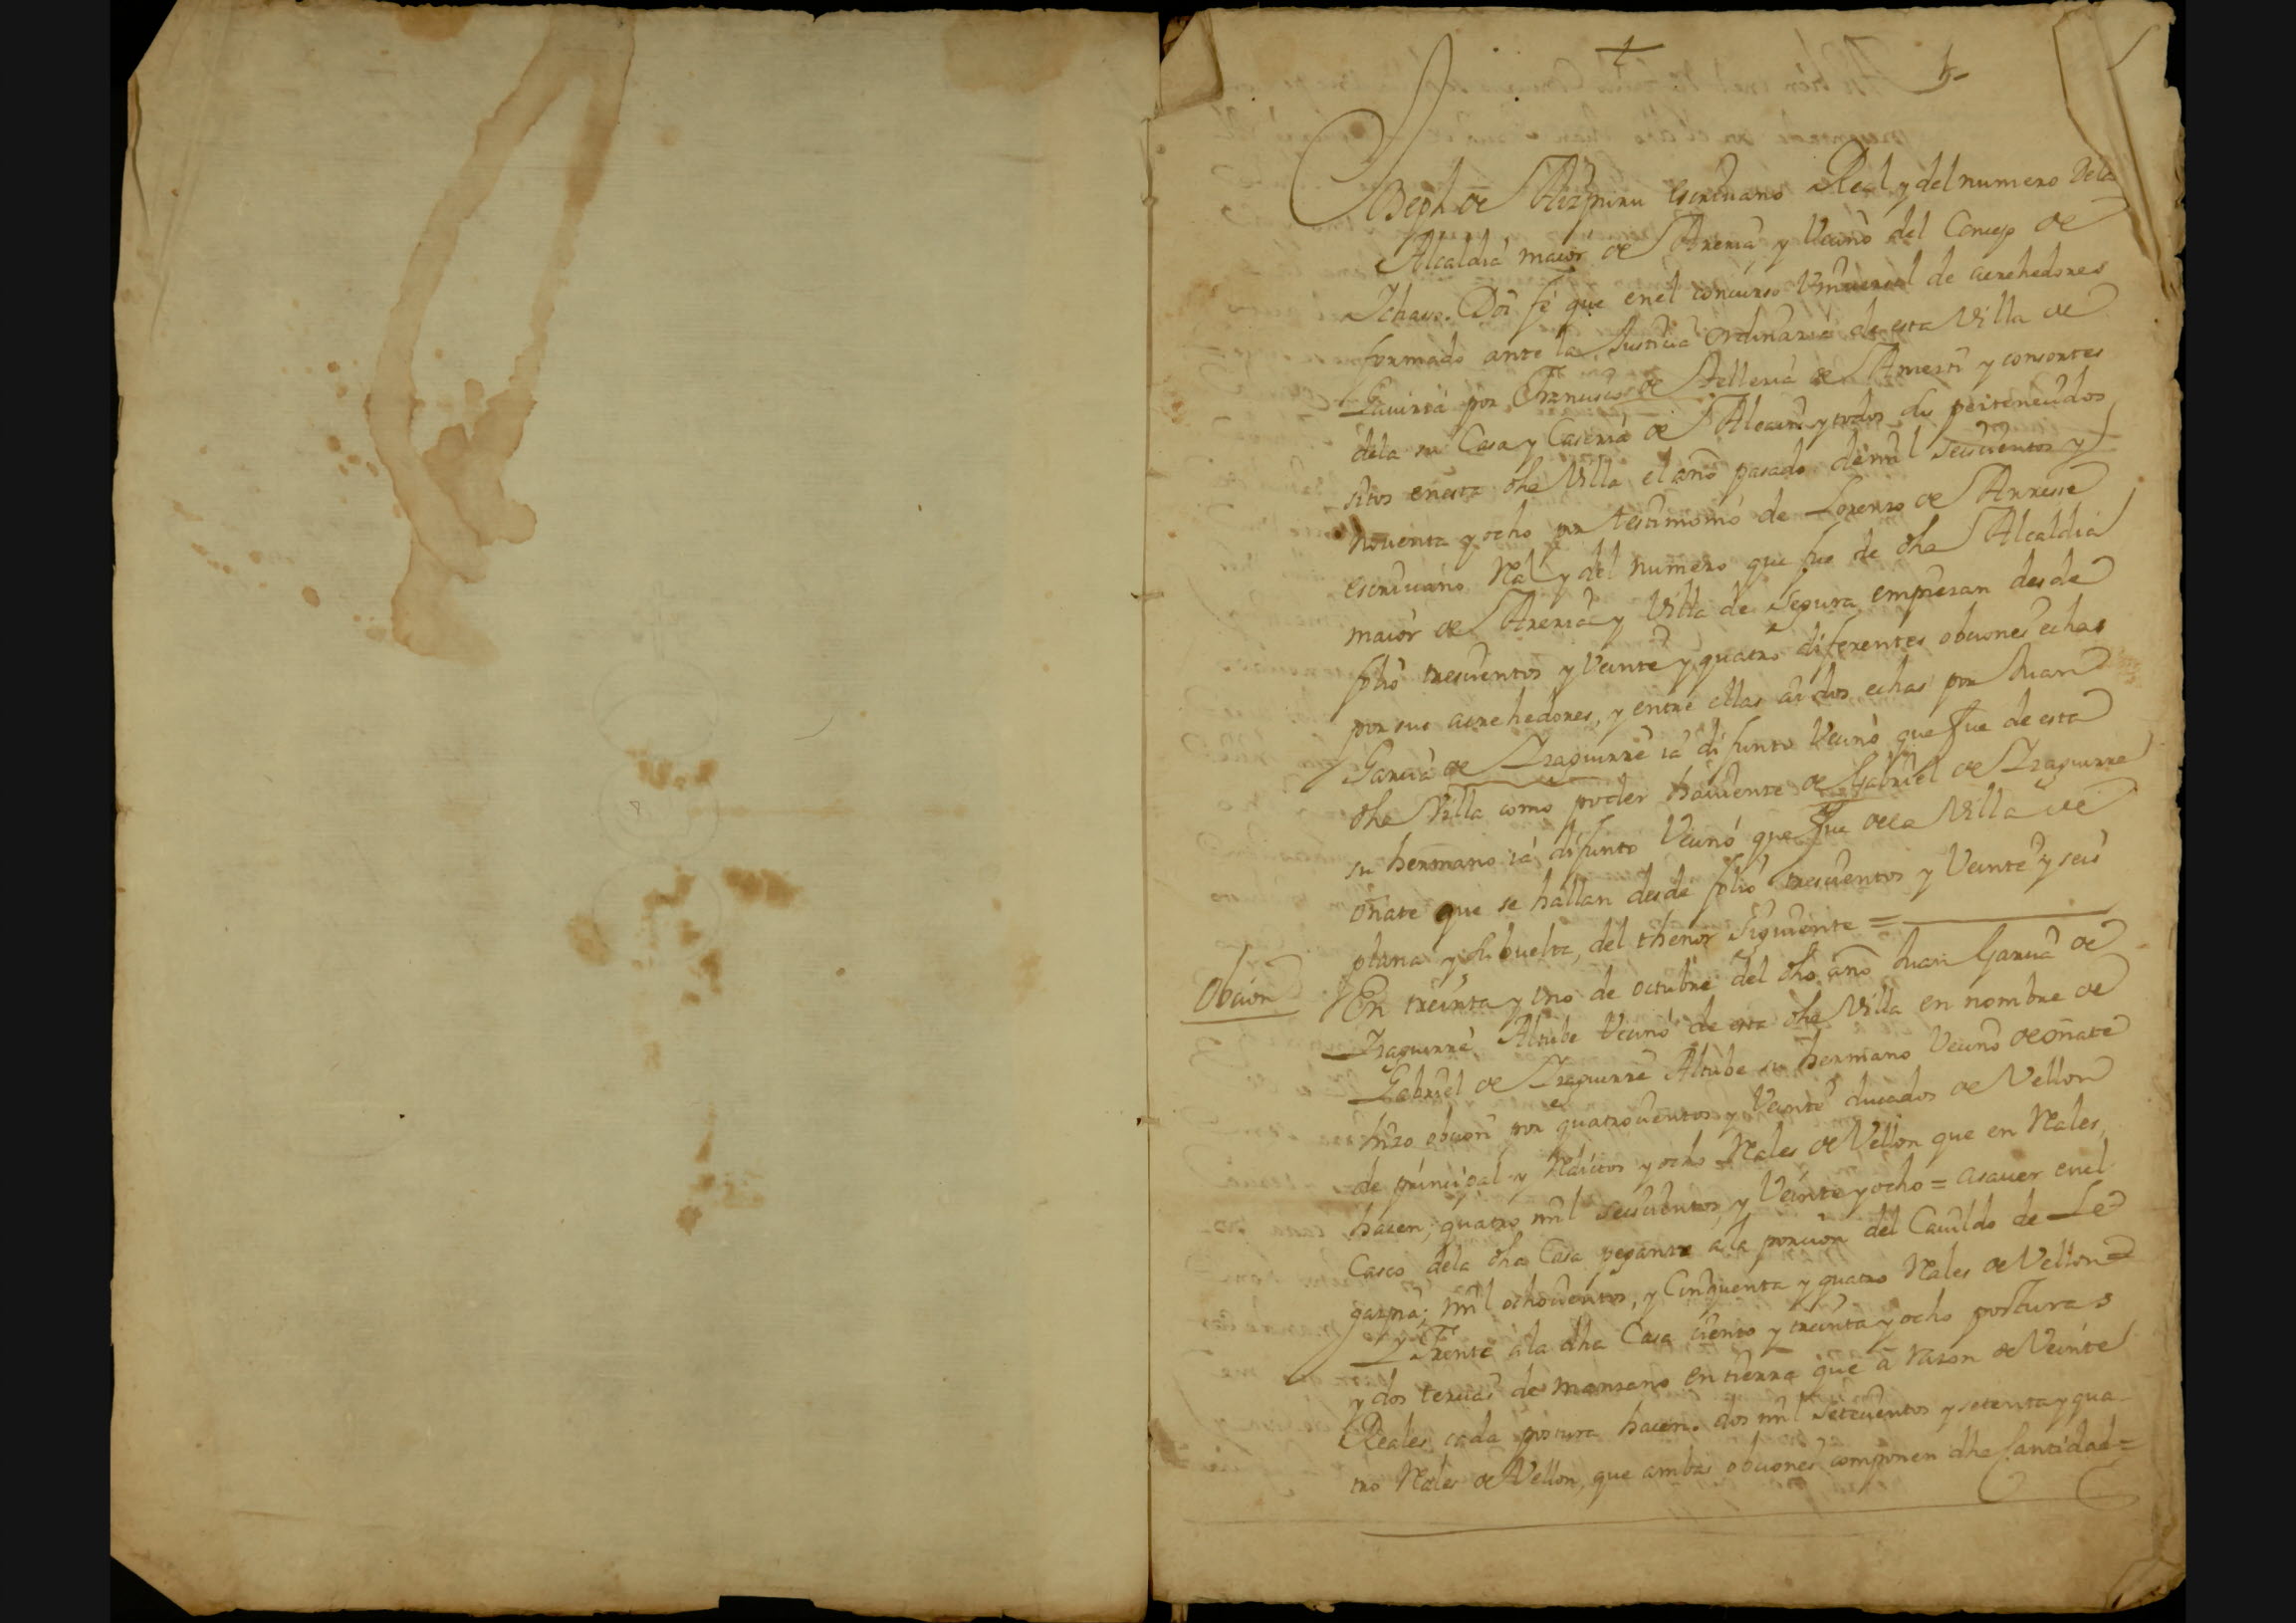 Joseph de Aizpuru escriuano Real y del numero dela
Alcaldia maior de Areria y Vecino del Concejo de
Ichaso. Doi fé que enel concurso Vniuersal de acrehedores
formado ante la Justicia ordinaria de esta Villa de
Gauiria por Franco de Telleria de Amezti y consortes
dela su Casa y Caseria de y todos sus pertenecidos
sitos enesta dha Villa el año pasado de mil seiscientos y
nouenta y ocho por testimonio de Lorenzo de Arrese
escriuano Ral y del numero que fue de dha Alcaldia
maior de Areria y Villa de Segura empiezan desde
folio trescientos y Veinte y quatro diferentes obciones echas
por sus acrehedores, y entre ellas ai dos echas por Juan
Garcia de Izaguirre iá difunto Vecino que fue de esta
dha Villa como poder hauiente de Gabriel de Izaguirre
su hermano iá difunto Vecino que fue dela Villa de
oñate que se hallan desde folio trescientos y Veinte y seis
plana y su buelta, del thenor siguiente =
Obcion
En treinta y vno de octubre del dho año Juan Garcia de
Izaguirre Altube Vecino de esta dha Villa en nombre de
Gabriel de Izaguirre Altube su hermano Vecino de oñate
hizo obcion por quatrocientos y Veinte ducados de Vellon
de principal y Reditos y ocho Rales de Vellon que en Rales,
hacen; quatro mil seiscientos, y Veinte y ocho = asauer enel
Casco dela dha Casa pegante a la porcion del Cauildo de Le
gazpia; mil ochocientos, y Cinquenta y quatro Rales de Vellon =
Y Frente a la dha Casa ciento y treinta y ocho posturas
y dos tercias de manzano en tierra que a razon de Veinte
Reales cada postura hacen dos mil setecientos y setenta y qua-
tro Rales de Vellon, que ambas obciones componen dha Cantidad =